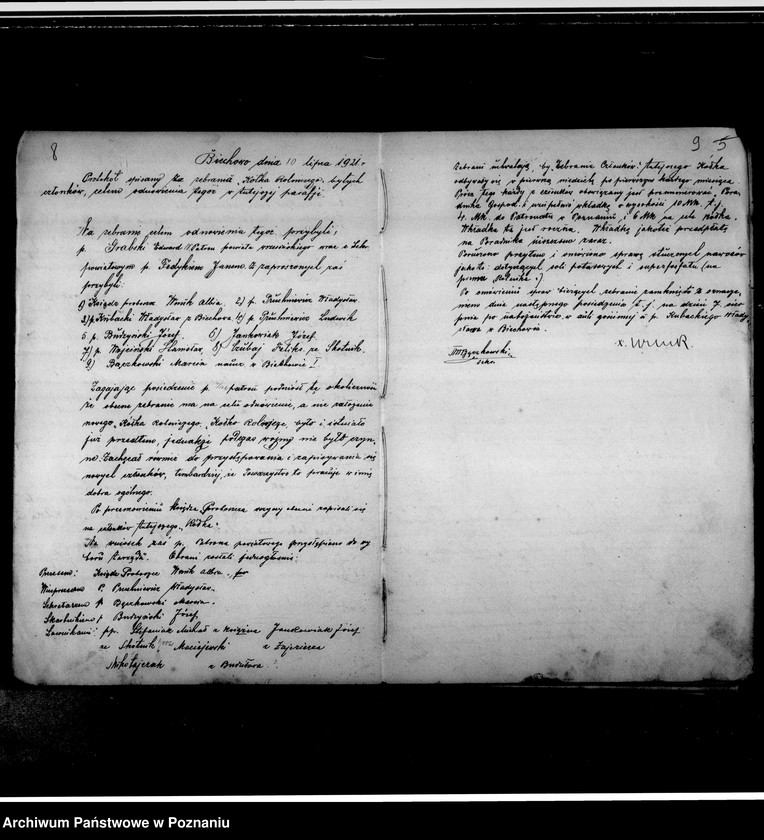 8
Biechowo dnia 10 lipca 1921 r
Protokół spisany za zebrania "Kółka Rolniczego" byłych
członków, celem odnowienia tegoż w tutejszej parafji.
Na zebranie celem odnowienia tegoż przybyli;
p. Grabski Edward Patron powiatu wrzesińskiego wraz z Sekr.
powiatowym p. Fedykiem Janem. Z zaproszonych zaś
przybyli:
1) Ksiądz proboszcz 2) p. Władysław
3) p. Władysław z Biechowa 4) p. Ludwik
5 p. Budzyński Józef. 6) Jankowiak Józef.
7) p. Stanisław, 8) Feliks ze Skotnik.
9) Bączkowski Marcin naucz. z Biechowa
Zagajając posiedzenie p. patron podniósł tę okoliczność
że obecne zebranie ma na celu odnowienie, a nie założenie
nowego "Kółka rolniczego". Kółko rolnicze, było i istniało
już przedtem, jednakże podczas wojny nie było czyn-
ne. Zachęcał również do przystępowania i zapisywania się
nowych członków, tembardziej, że Towarzystwo to pracuje w imię
dobra ogólnego.
Po przemówieniu księdza Proboszcza wszyscy obecni zapisali się
na członków tutejszego "Kółka".
Na wniosek zaś p. Patrona powiatowego przystąpiono do wy-
boru zarządu. Obrani zostali jednogłośnie:
Prezesem: Ksiądz Proboszcz
Wiceprezesem p. Władysław.
Sekretarzem p Bączkowski Marcin.
Skarbnikiem p Budzyński Józef
Ławnikami: pp. Stefaniak Michał z Jankowiak Józef
ze Skotnik, Maciejewski z
Mikołajczak z
9 5
Zebrani uchwalają, by Zebrania Członków tutejszego Kółka
odbywały się w pierwszą niedzielę po pierwszym każdego miesiąca
Prócz tego każdy z członków obowiązany jest prenumerować "Pora-
dnika Gospod." i uzupełnić wkładkę w wysokości 10 Mk. t. j.
4. Mk. do Patronatu w Poznaniu i 6 Mk na cele Kółka.
Wkładka ta jest roczna. Wkładkę jakoteż przedpłatę
na Poradnika uiszczono zaraz.
Poruszono przytem i omówiono sprawę sztucznych nawozów
jakoto: dotyczących soli potasowych i superfosfatu (na
Po omówieniu spraw bieżących zebranie zamknięto z oznacze-
niem dnia następnego posiedzenia t. j. na dzień 7. sier-
pnia po nabożeństwie w sali gościnnej u p. Kubackiego Włady-
sława w Biechowie.
Bączkowski.
sekr.
Archiwum Państwowe w Poznaniu